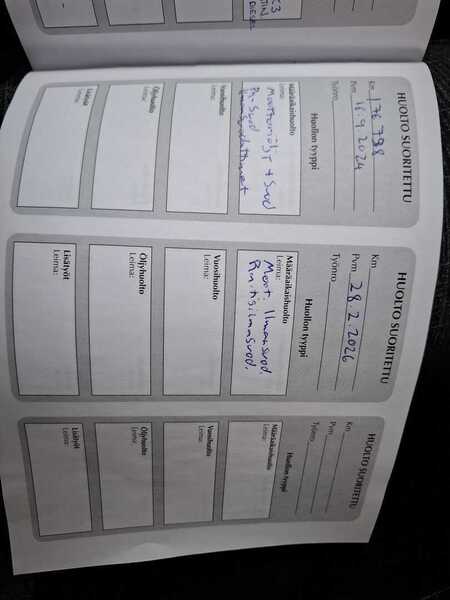 C3
DIESEL
HUOLTO SUORITETTU
Km 176 798
Pvm 16.9.2024
Työnro
Huollon tyyppi
Määräaikaishuolto
Leima:
Moottoriöljy + Suod
Vuosihuolto
Leima:
Öljyhuolto
Leima:
Lisätyöt
Leima:
HUOLTO SUORITETTU
Km
Pvm 28.2.2026
Työnro
Huollon tyyppi
Määräaikaishuolto
Leima:
Moot. Ilmansuod.
Raitisilmasuod.
Vuosihuolto
Leima:
Öljyhuolto
Leima:
Lisätyöt
Leima:
HUOLTO SUORITETTU
Km
Pvm
Työnro
Huollon tyyppi
Määräaikaishuolto
Leima:
Vuosihuolto
Leima:
Öljyhuolto
Leima:
Lisätyöt
Leima: